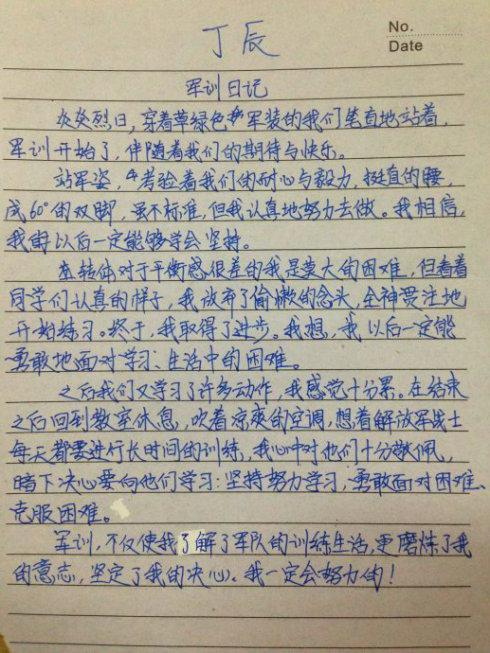 丁辰
No.
Date
军训日记
炎炎烈日，穿着草绿色军装的我们笔直地站着，
军训开始了，伴随着我们的期待与快乐。
站军姿，考验着我们的耐心与毅力，挺直的腰，
成60°的双脚，虽不标准，但我认真地努力去做。我相信，
我以后一定能够学会坚持。
转体对于平衡感很差的我是莫大的困难，但看着
同学们认真的样子，我放弃了偷懒的念头，全神贯注地
开始练习。终于，我取得了进步。我想，我以后一定能
勇敢地面对学习、生活中的困难。
之后我们又学习了许多动作，我感觉十分累。在结束
之后回到教室休息，吹着凉爽的空调，想着解放军战士
每天都要进行长时间的训练，我心中对他们十分敬佩，
暗下决心要向他们学习：坚持努力学习，勇敢面对困难、
克服困难。
军训，不仅使我了解了军队的训练生活，更磨炼了我
的意志，坚定了我的决心。我一定会努力的！